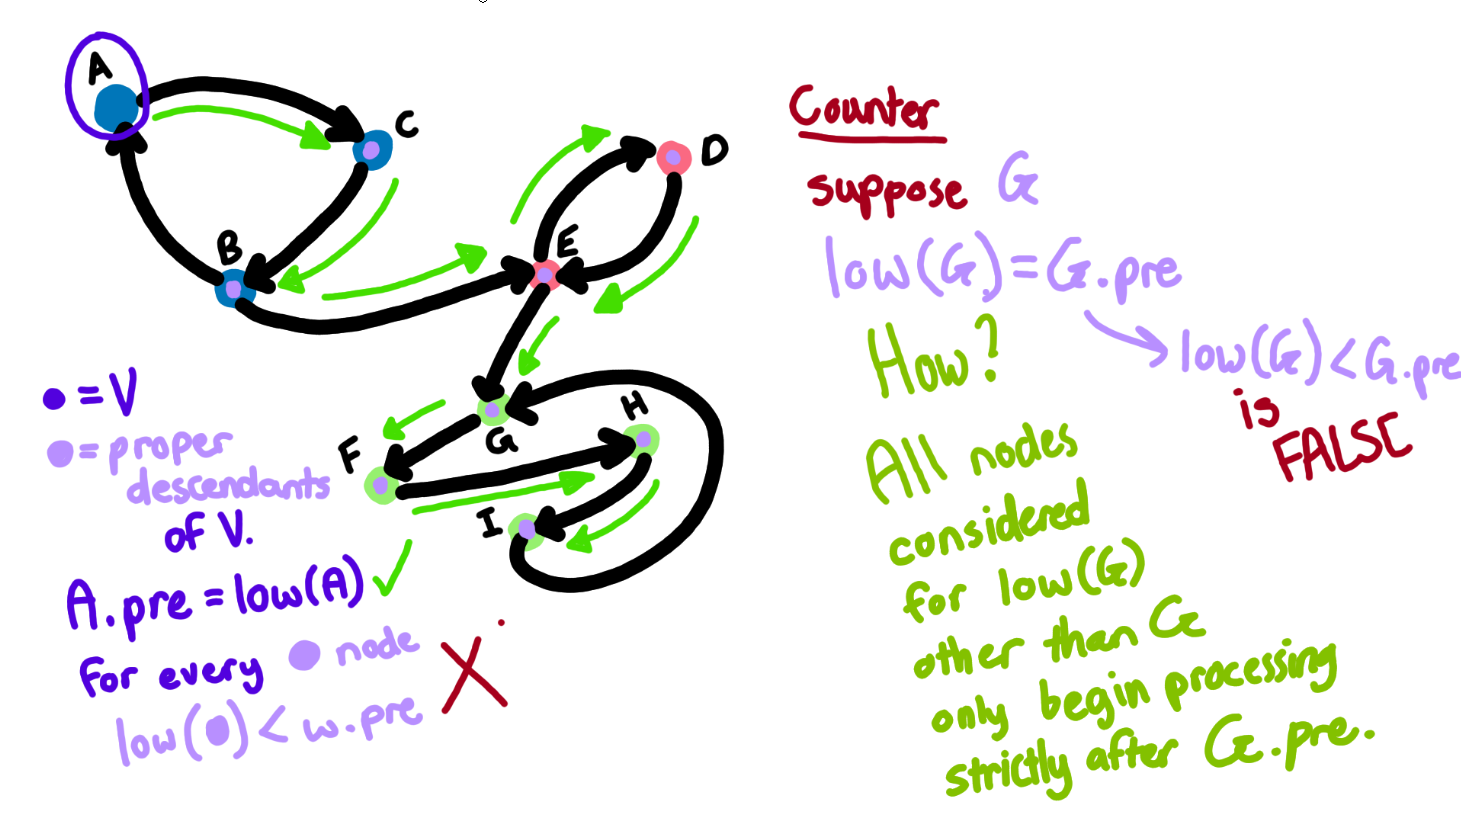 A
C
D
B
E
G
H
F
I
● = V
● = proper
descendants
of V.
A.pre = low(A) ✓
for every ● node
low(●) < w.pre X
Counter
suppose G
low(G) = G.pre
How?
low(G) < G.pre
is
FALSE
All nodes
considered
for low(G)
other than G
only begin processing
strictly after G.pre.